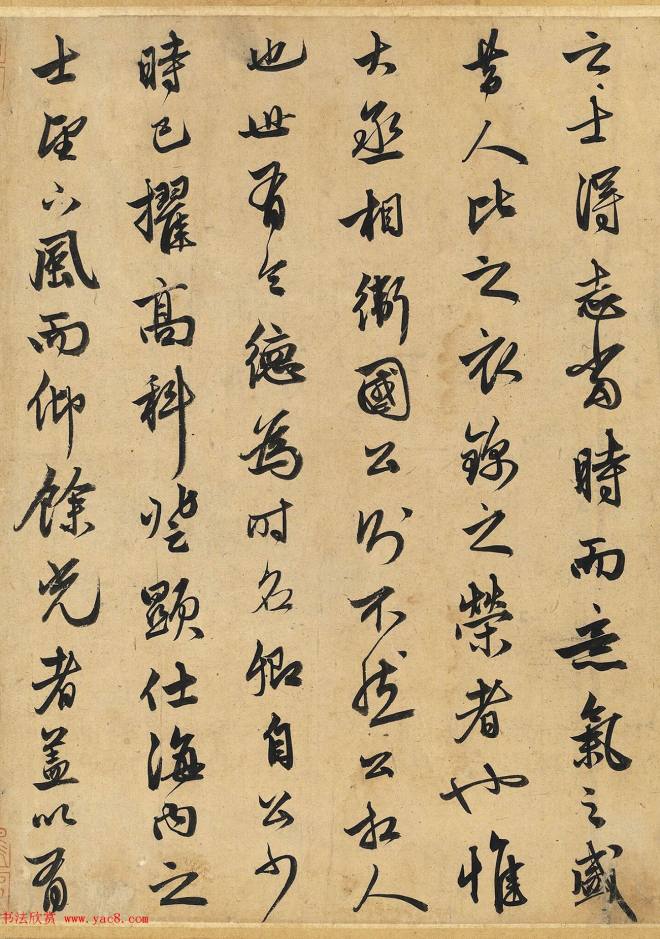 之士得志當時而意氣之盛
昔人比之衣錦之榮者也惟
大丞相衛國公則不然公相人
也世有令德為時名卿自公少
時已擢高科登顯仕海內之
士望下風而仰餘光者蓋以有
书法欣赏 www.yac8.com